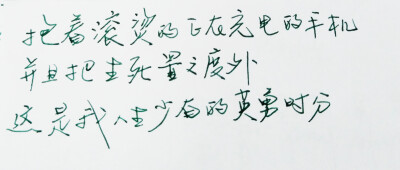 抱着滚烫的正在充电的手机
并且把生死置之度外
这是我人生少有的英勇时分